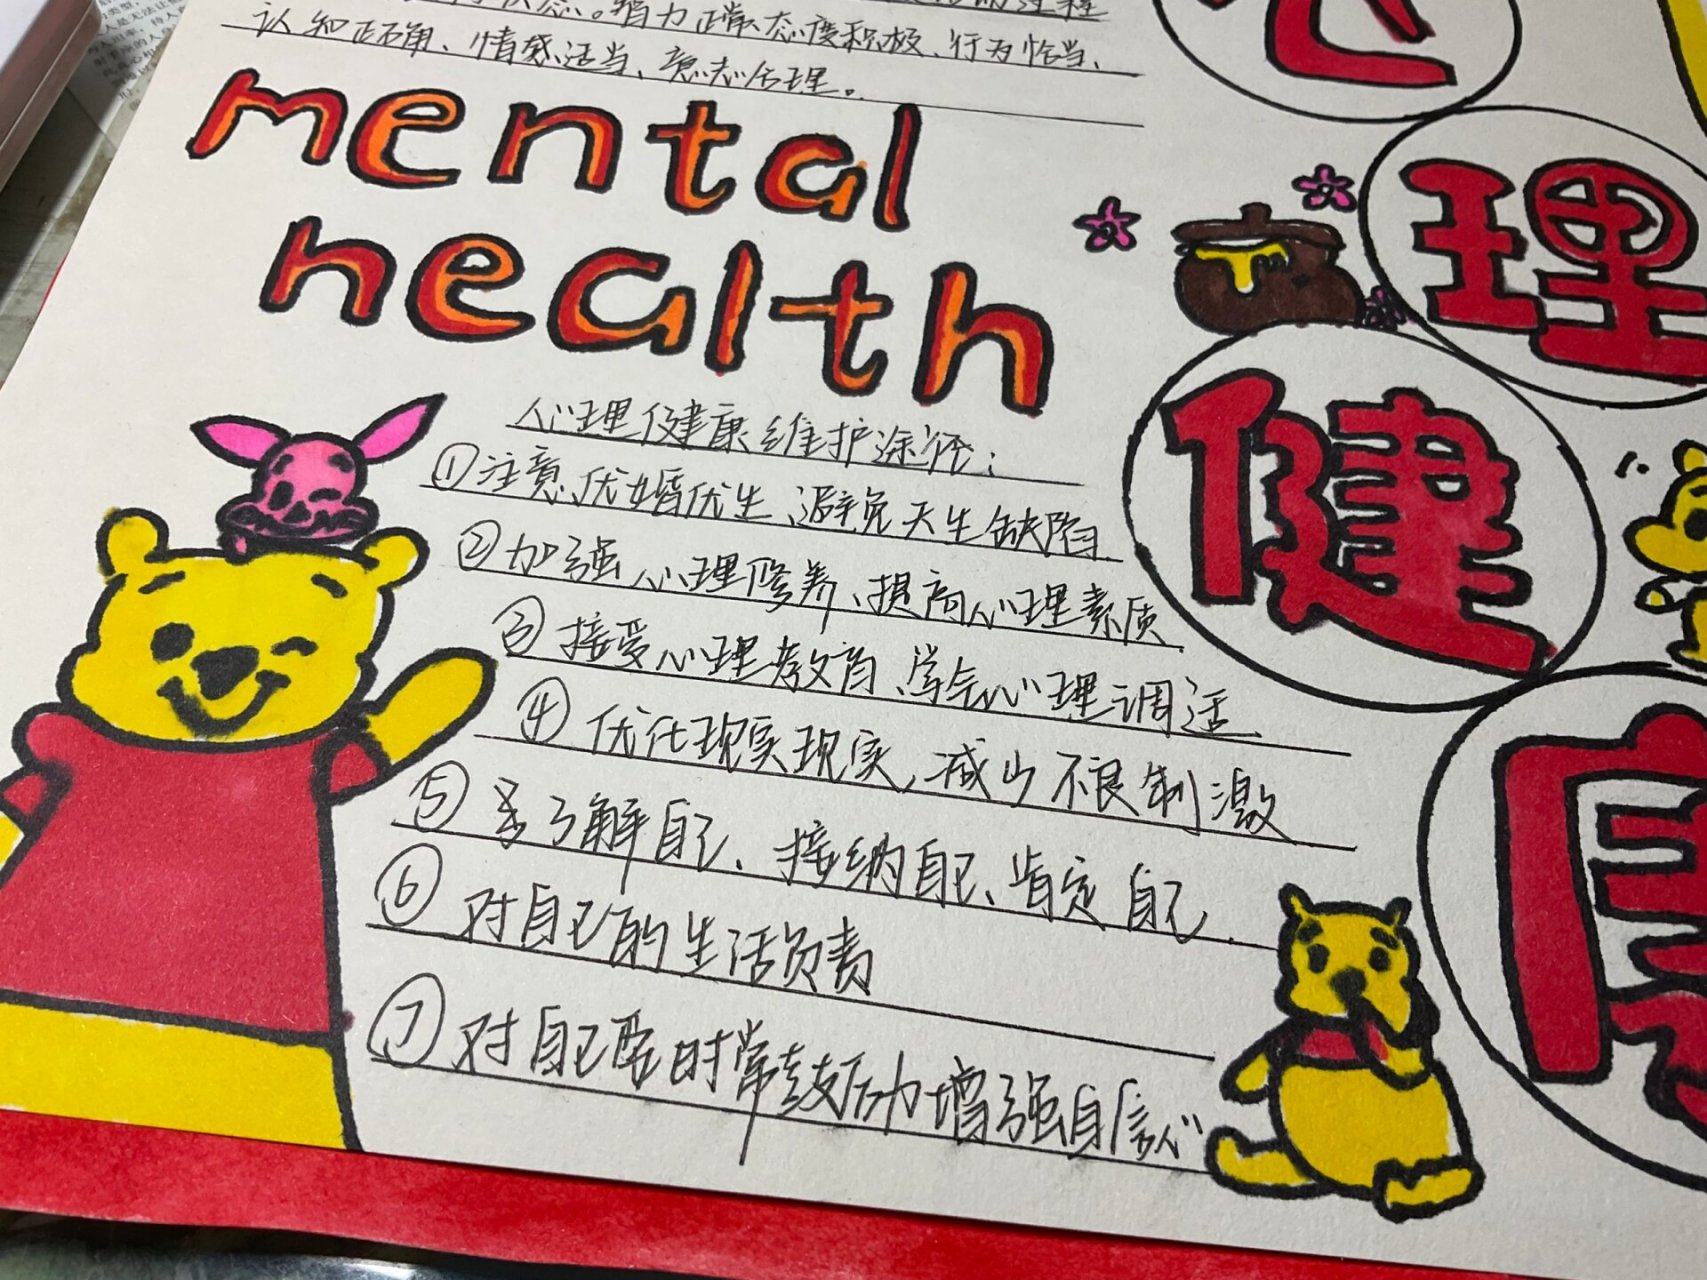 状态。智力正常、态度积极、行为恰当、
认知正确、情感适当、意志合理。
mental
health
心理健康
心理健康维护途径:
①注意优婚优生、避免天生缺陷
②加强心理修养、提高心理素质
③接受心理教育、学会心理调适
④优化现实现实,减少不良制激
⑤ 了解自己、接纳自己、肯定自己.
⑥对自己的生活负责
⑦对自己要时常鼓励增强自信心